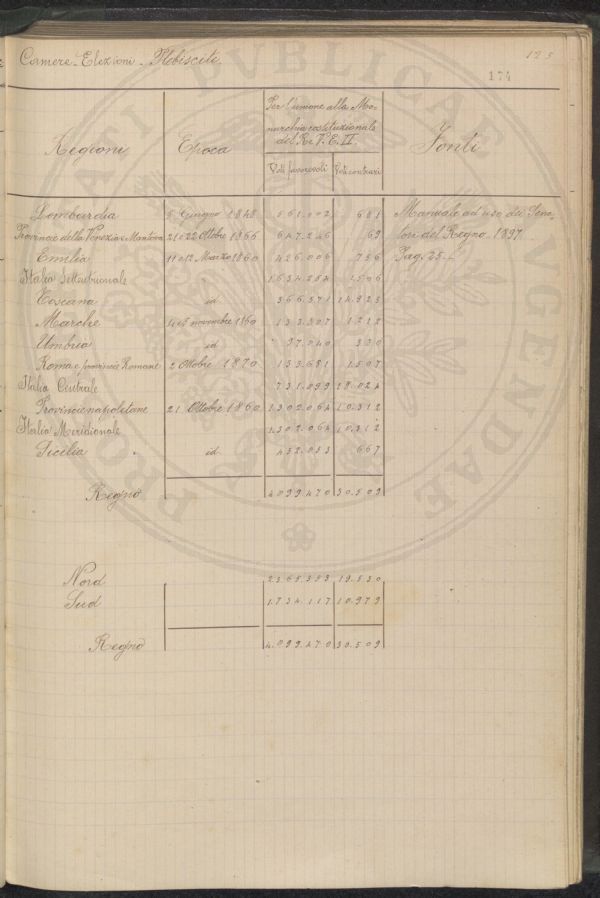 Camere - Elezioni - Plebisciti
125
174
Regioni	Epoca	Per l'unione alla Mo-
narchia costituzionale
del Re V. E. II.	Fonti
Voti favorevoli	Voti contrari
Lombardia	8 Giugno 1848	561.002	681	Manuale ad uso dei Sena-
Provincie della Venezia e Mantova	21 e 22 Ottobre 1866	647.246	69	tori del Regno. 1897
Emilia	11 e 12 Marzo 1860	426.006	756	Pag. 25 -
Italia Settentrionale	1.634.254	1.506
Toscana	id	366.571	14.925
Marche	4 e 5 novembre 1860	133.807	1.212
Umbria	id	97.040	380
Roma e provincie Romane	2 Ottobre 1870	133.681	1.507
Italia Centrale	731.099	18.024
Provincie napoletane	21 Ottobre 1860	1.302.064	10.312
Italia Meridionale	1.302.064	10.312
Sicilia	id	432.053	667
Regno	4.099.470	30.509
Nord	2.365.353	19.530
Sud	1.734.117	10.979
Regno	4.099.470	30.509
PUBLICAE